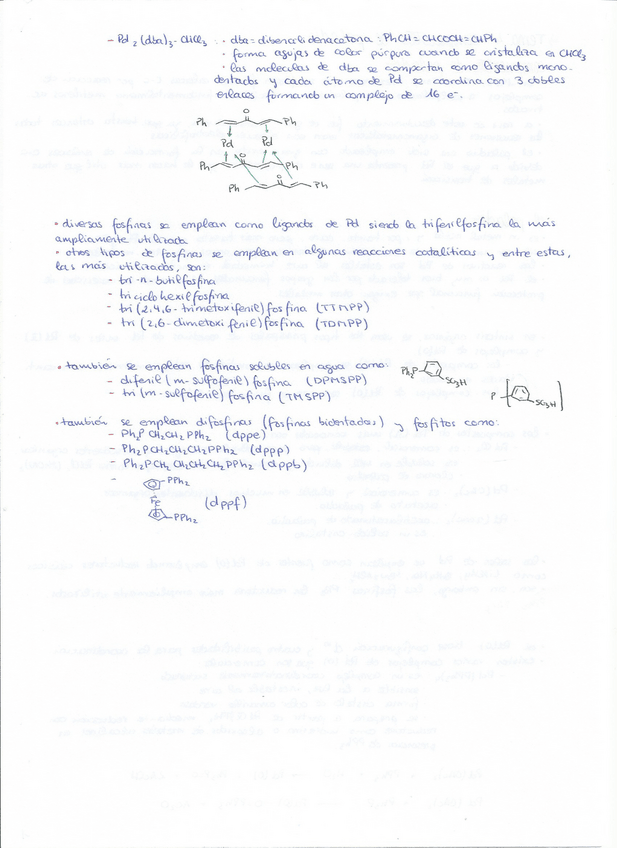 - Pd₂(dba)₃·CHCl₃ : · dba = dibencilidenacetona : PhCH=CHCOCH=CHPh
· forma agujas de color púrpura cuando se cristaliza en CHCl₃
· las moléculas de dba se comportan como ligandos mono-
dentados y cada átomo de Pd se coordina con 3 dobles
enlaces formando un complejo de 16 e⁻.
Ph O Ph
Pd Pd
Ph O Ph
Ph O Ph
· diversas fosfinas se emplean como ligandos de Pd siendo la trifenilfosfina la más
ampliamente utilizada
· otros tipos de fosfinas se emplean en algunas reacciones catalíticas y entre estas,
las más utilizadas, son:
- tri-n-butilfosfina
- triciclohexilfosfina
- tri(2,4,6-trimetoxifenil)fosfina (TTMPP)
- tri(2,6-dimetoxifenil)fosfina (TDMPP)
· también se emplean fosfinas solubles en agua como:
- difenil(m-sulfofenil)fosfina (DPMSPP) Ph₂P SO₃H
- tri(m-sulfofenil)fosfina (TMSPP) P SO₃H
· también se emplean difosfinas (fosfinas bidentadas) y fosfitos como:
- Ph₂PCH₂CH₂PPh₂ (dppe)
- Ph₂PCH₂CH₂CH₂PPh₂ (dppp)
- Ph₂PCH₂CH₂CH₂CH₂PPh₂ (dppb)
- PPh₂
Fe (dppf)
PPh₂